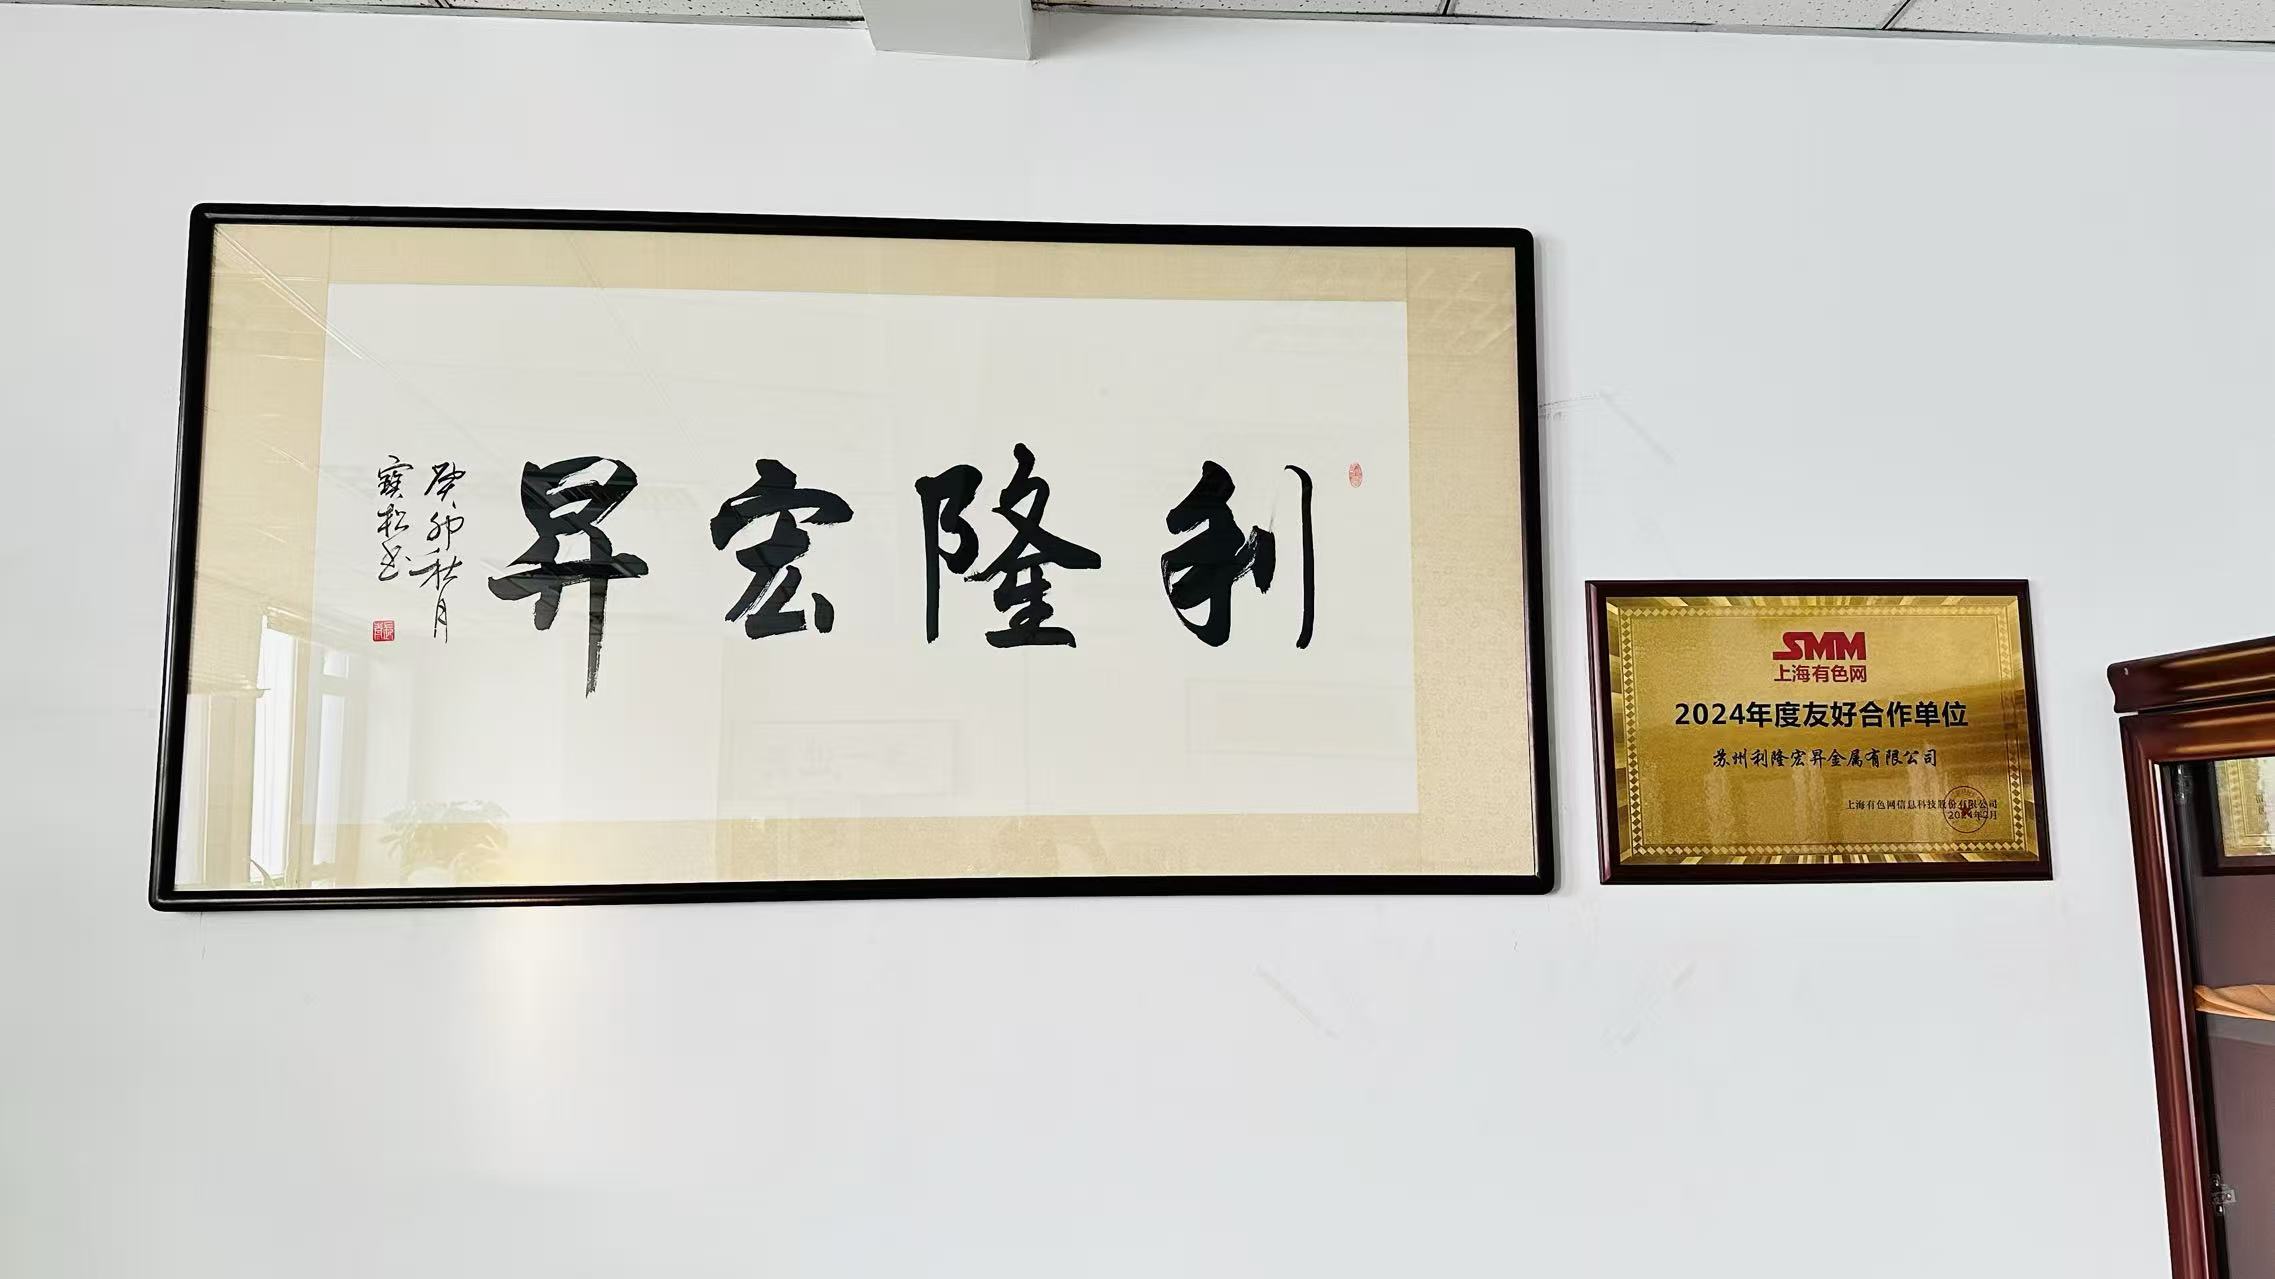 利隆宏昇
癸卯秋月
寶松书
SMM
上海有色网
2024年度友好合作单位
苏州利隆宏昇金属有限公司
上海有色网信息科技股份有限公司